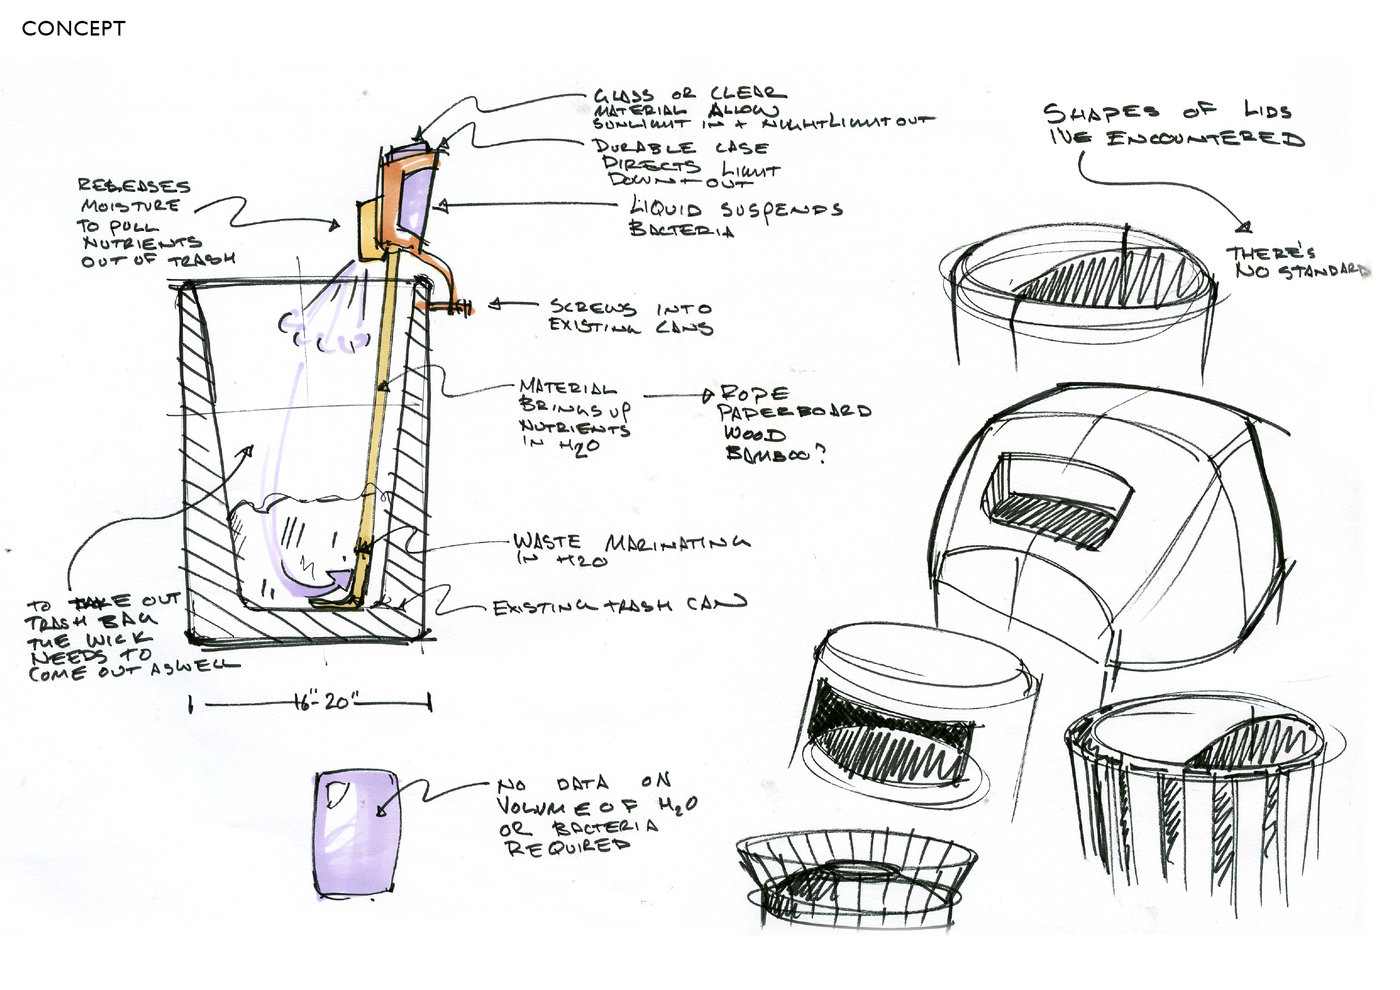 CONCEPT
GLASS OR CLEAR
MATERIAL ALLOW
SUNLIGHT IN + NIGHTLIGHT OUT
DURABLE CASE
DIRECTS LIGHT
DOWN + OUT
LIQUID SUSPENDS
BACTERIA
RELEASES
MOISTURE
TO PULL
NUTRIENTS
OUT OF TRASH
SCREWS INTO
EXISTING CANS
MATERIAL
BRINGS UP
NUTRIENTS
IN H2O
ROPE
PAPERBOARD
WOOD
BAMBOO?
WASTE MARINATING
IN H2O
EXISTING TRASH CAN
TO TAKE OUT
TRASH BAG
THE WICK
NEEDS TO
COME OUT ASWELL
16"-20"
NO DATA ON
VOLUME OF H2O
OR BACTERIA
REQUIRED
SHAPES OF LIDS
I'VE ENCOUNTERED
THERE'S
NO STANDARD